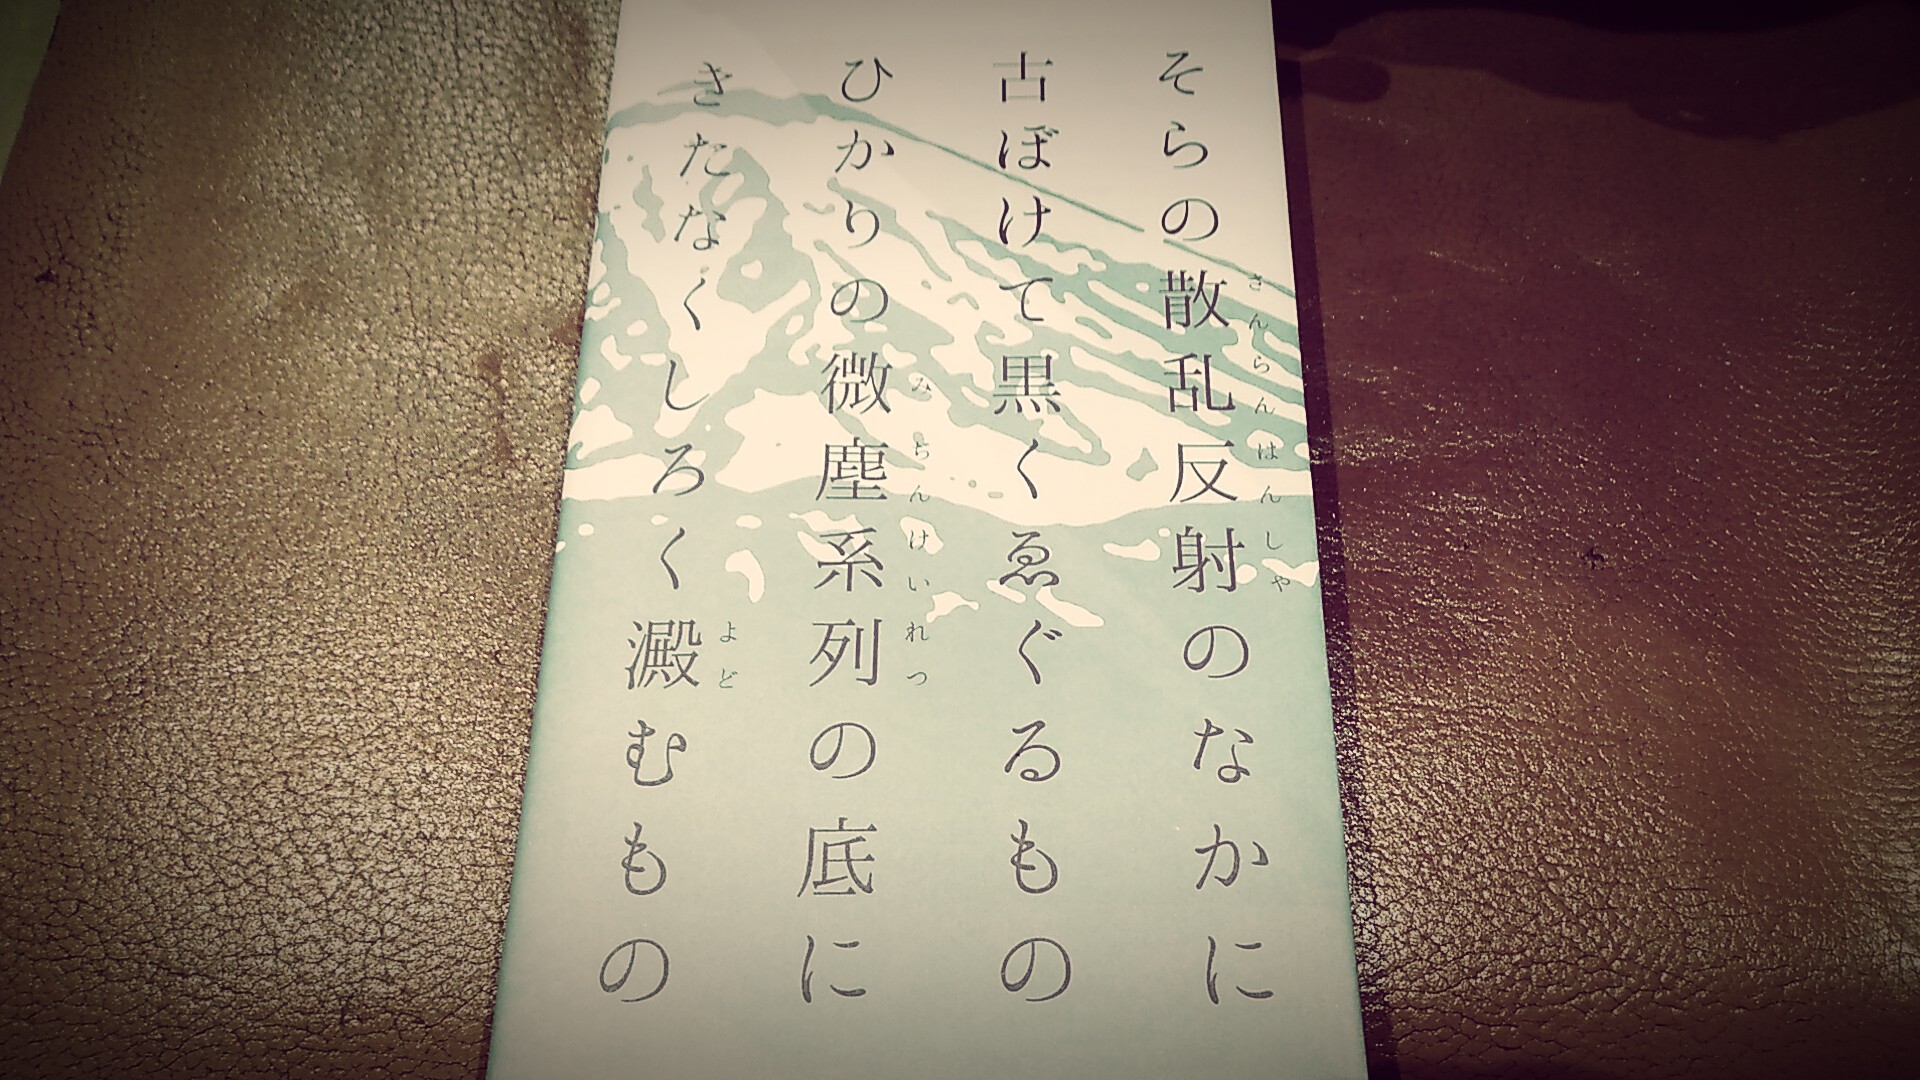 そらの散乱反射のなかに
古ぼけて黒くゑぐるもの
ひかりの微塵系列の底に
きたなくしろく澱むもの
さんらんはんしや
みぢんけいれつ
よど